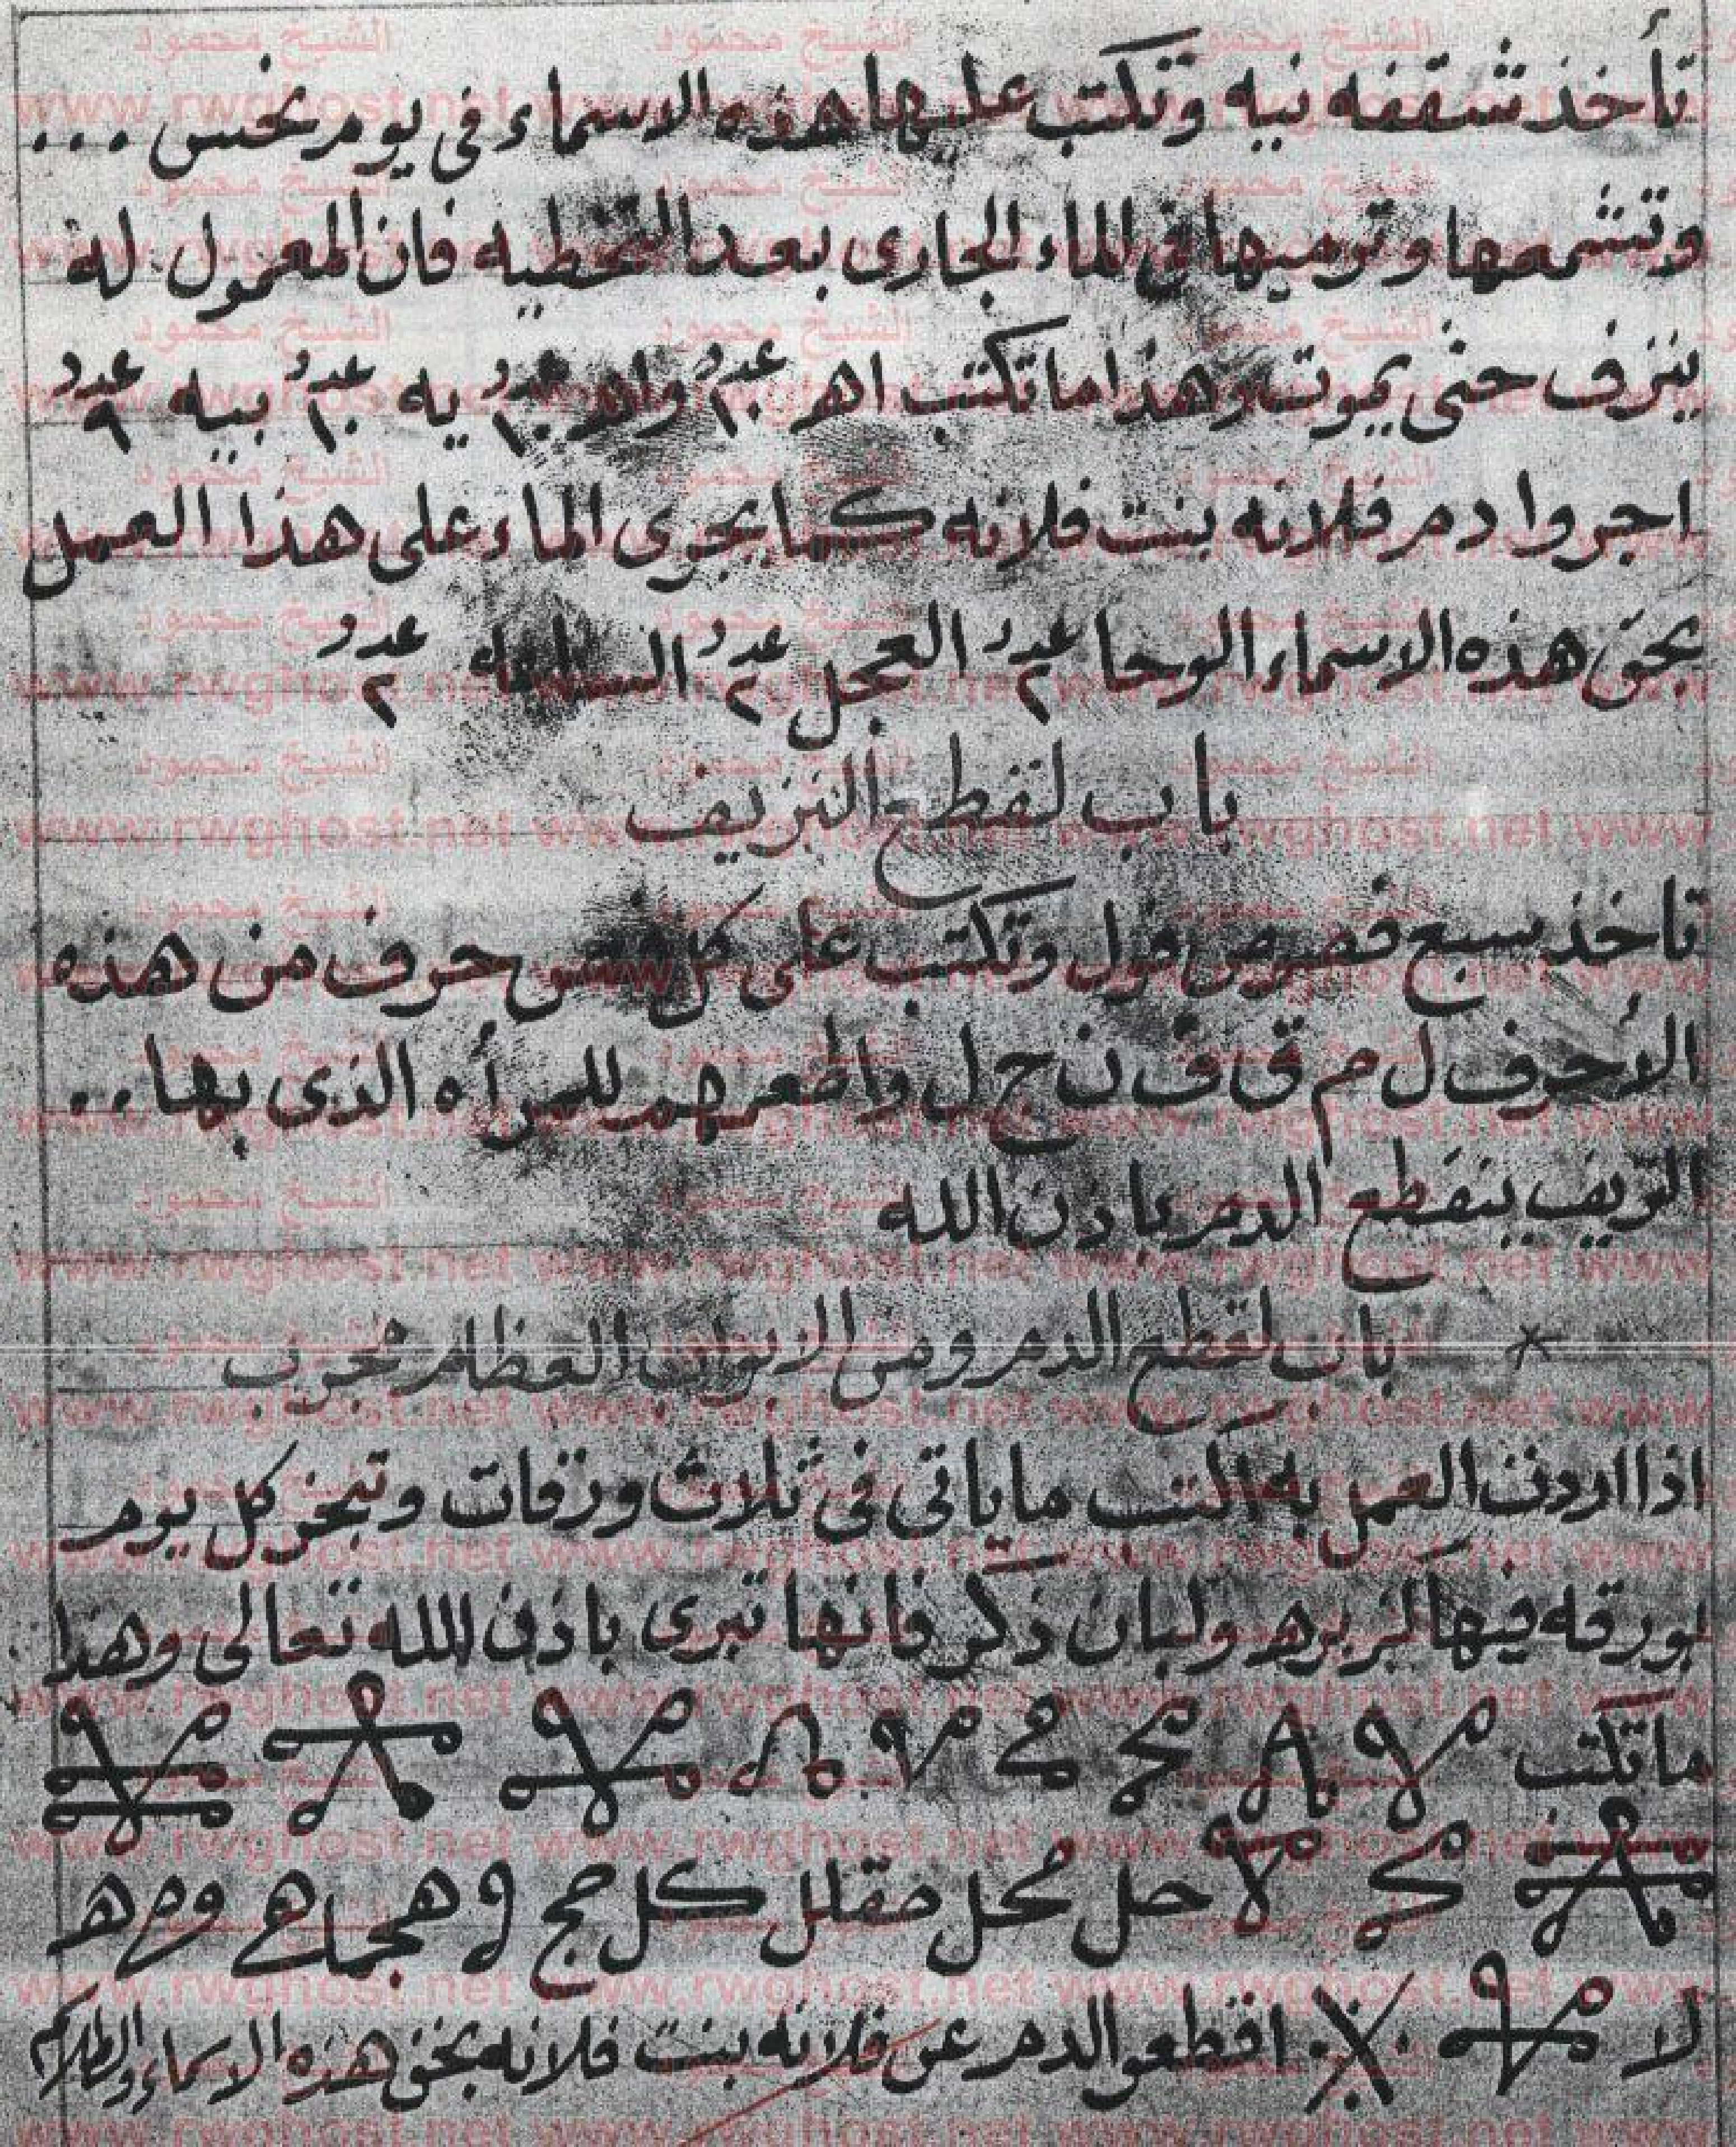 تأخذ شقفه نيه وتكتب عليها هذه الاسماء فى يوم نحس ...
وتشمعها وترميها فى الماء الجارى بعد التخطيه فان المعمول له
ينزف حتى يموت وهذا ما تكتب اهر عدد ١٠ واهر عدد ١٠ يه عدد ١٠ بيه عدد ٩
اجروا دم فلانه بنت فلانه كما يجرى الماء على هذا العمل
بحق هذه الاسماء الوحا عدد ٢ العجل عدد ٢ الساعه عدد ٢
باب لقطع النزيف
تاخذ سبع فصوص فول وتكتب على كل فص حرف من هذه
الأحرف ل م ق ف ن ج ل واطعمهم للمرأه الذى بها..
النزيف ينقطع الدم باذن الله
باب لقطع الدم ومن الابواب العظام مجرب
اذا اردت العمل به اكتب ماياتى فى ثلاث ورقات وتبخر كل يوم
بورقه فيها كزبره ولبان ذكر فانها تبرى باذن الله تعالى وهذا
ماتكتب
حل محل مقلل كل حج
لا اقطعوا الدم عن فلانه بنت فلانه بحق هذه الاسماء والطلاسم
الشيخ محمود
www.rwghost.net